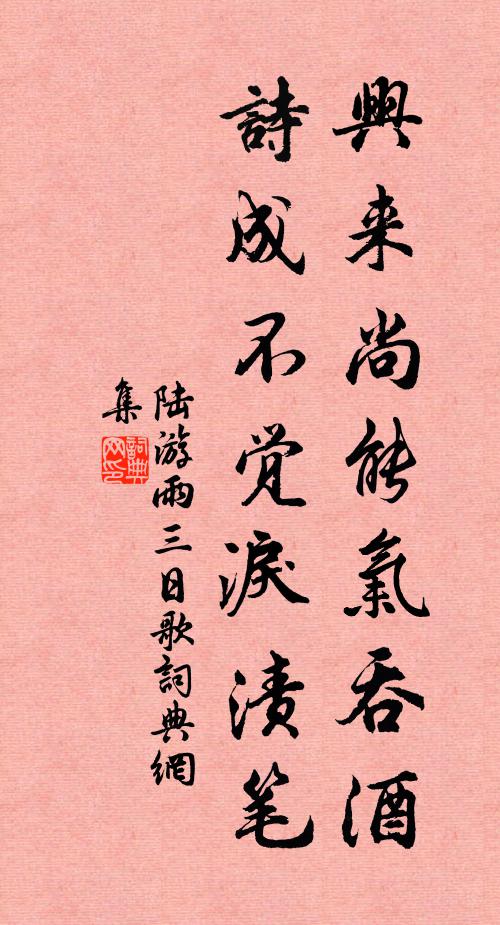 興来尚能氣吞酒
詩成不觉淚漬笔
陆游雨三日歌詞典網
集
詞典网印